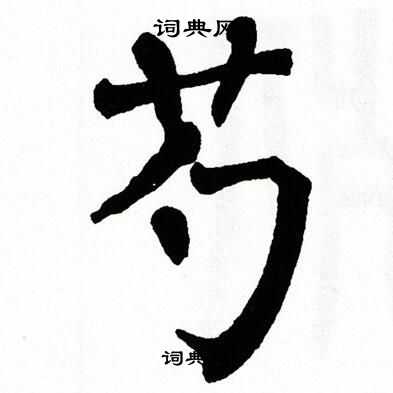 词典网
芍
词典网